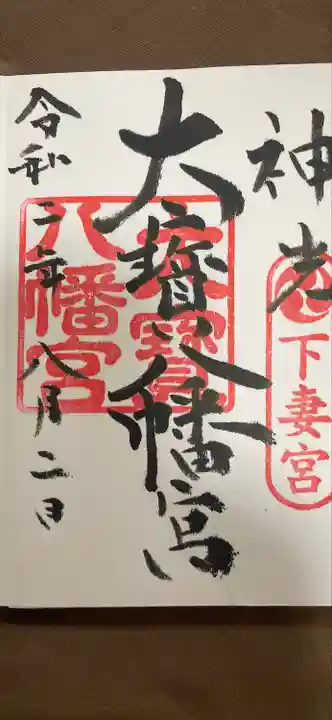 神光
下妻宮
大寳八幡宮
大寳八幡宮
令和二年八月二日